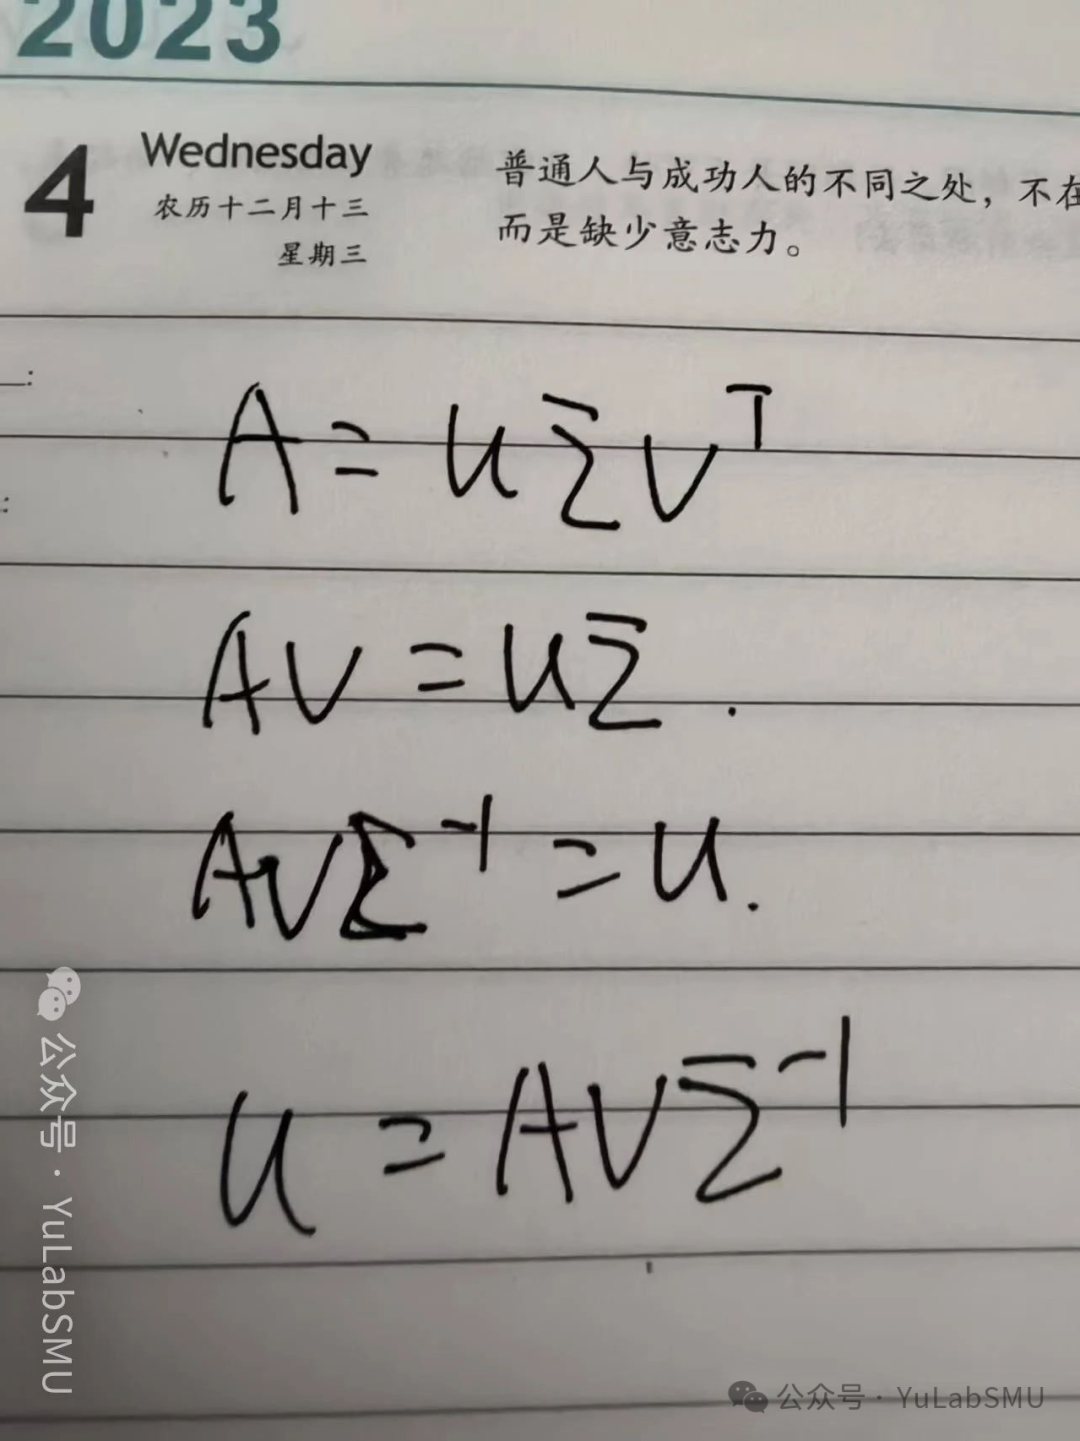 2023
4 Wednesday
农历十二月十三
星期三
普通人与成功人的不同之处，不在
而是缺少意志力。
A = U Σ V^T
AV = UΣ.
AVΣ^-1 = U.
U = AVΣ^-1
公众号·YuLabSMU
公众号·YuLabSMU